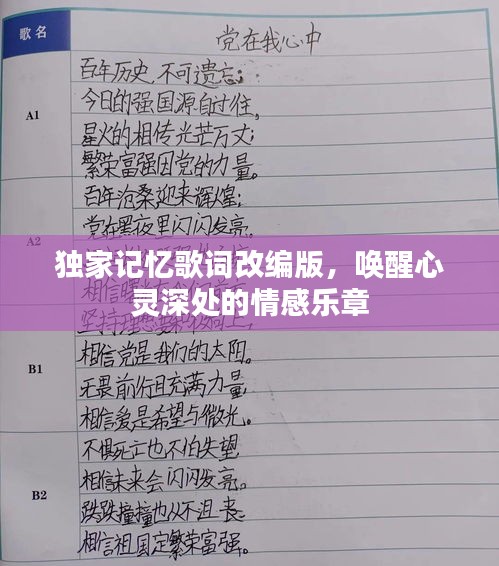 歌名 党在我心中
A1
百年历史,不可遗忘;
今日的强国源自过往,
星火的相传光芒万丈;
繁荣富强因党的力量。
A2
百年沧桑迎来辉煌;
党在黑夜里闪闪发亮.
独家记忆歌词改编版，唤醒心
灵深处的情感乐章
坚持理想
B1
相信党是我们的太阳.
无畏前行且充满力量,
相信爱是希望与微光。
B2
不惧死亡也不怕失望
相信未来会闪闪发亮.
跌跌撞撞也从不沮丧
相信祖国定繁荣富强。